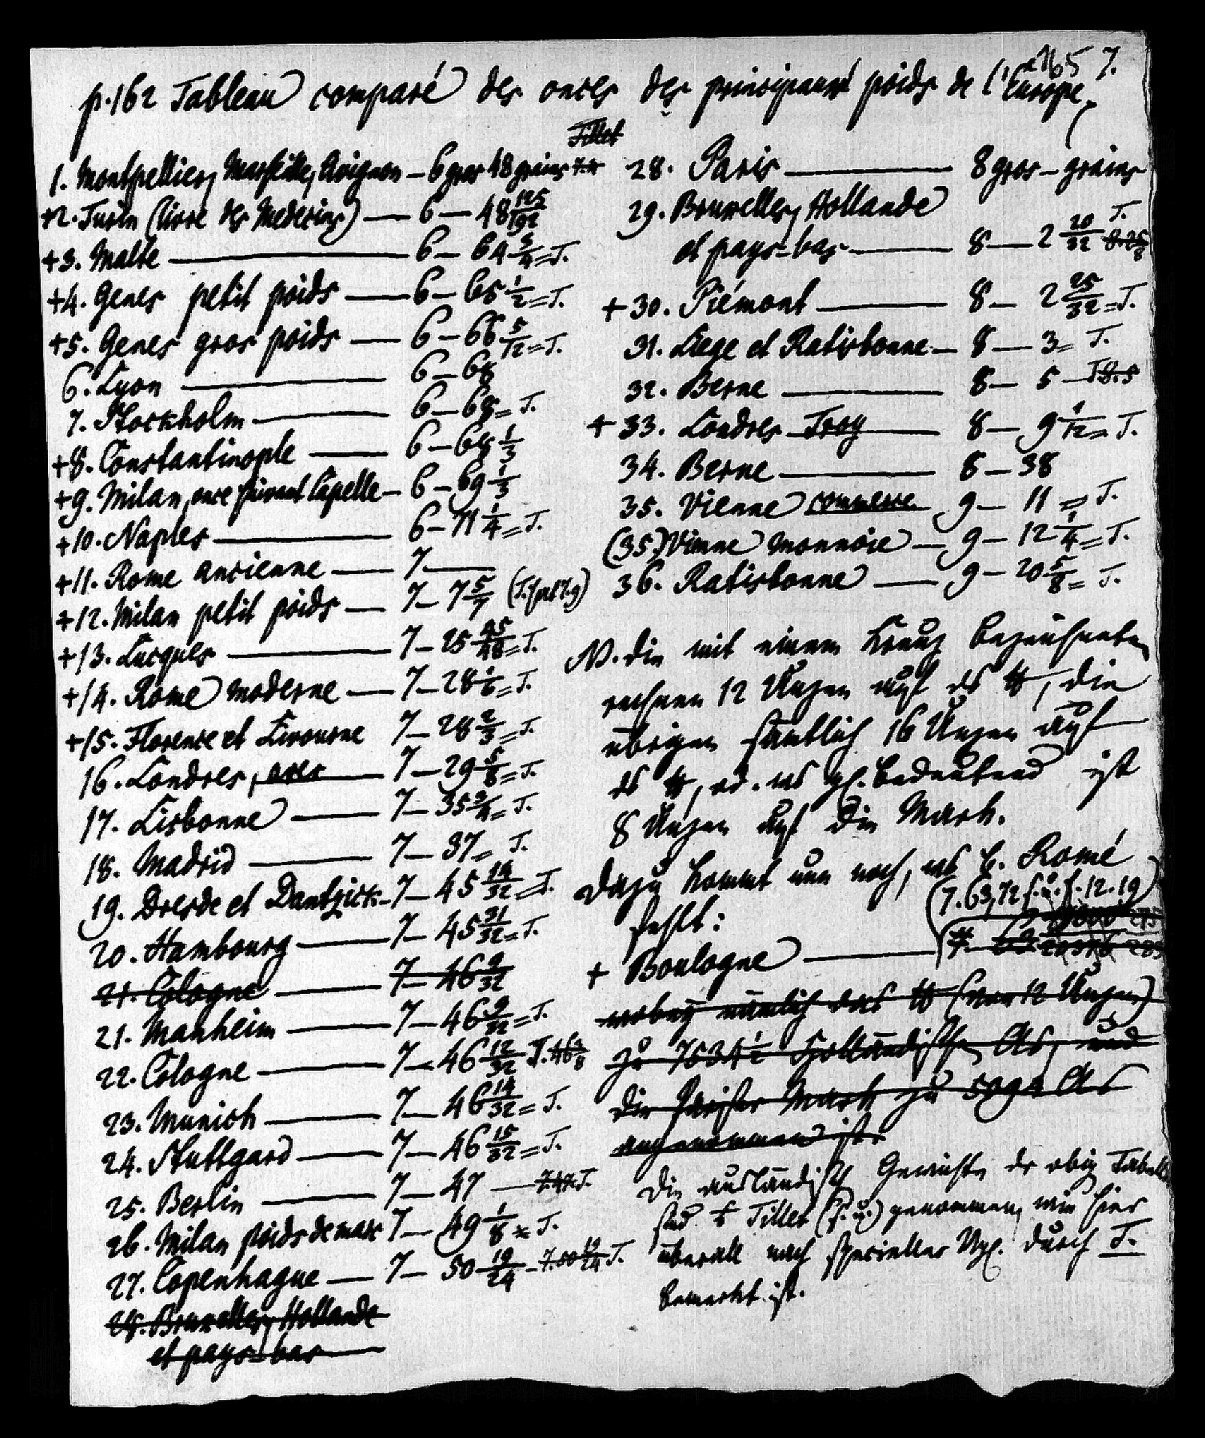 p. 162 Tableau comparé des onces des principaux poids de l'Europe,
1. Montpellier, Marseille, Avignon – 6 gros 48 grains
+2. Turin (livre des Medecins) — 6 — 48 125/192
+3. Malte — 6 — 64 3/4 = T.
+4. Genes petit poids — 6 — 65 1/2 = T.
+5. Genes gros poids — 6 — 66 5/12 = T.
6. Lyon — 6 — 68
7. Stockholm — 6 — 68 = T.
+8. Constantinople — 6 — 68 1/3
+9. Milan, once suivant Capelle — 6 — 69 1/3
+10. Naples — 6 — 71 1/4 = T.
+11. Rome ancienne — 7 —
+12. Milan petit poids — 7 — 7 5/7
+13. Lucques — 7 — 25 45/48 = T.
+14. Rome moderne — 7 — 28 1/6 = T.
+15. Florence et Livourne 7 — 28 2/3 = T.
16. Londres, — 7 — 29 5/8 = T.
17. Lisbonne — 7 — 35 3/4 = T.
18. Madrid — 7 — 37 = T.
19. Dresde et Dantzick — 7 — 45 14/32 = T.
20. Hambourg — 7 — 45 31/32 = T.
21. Cologne — 7 — 46 9/32
21. Manheim — 7 — 46 9/32 = T.
22. Cologne — 7 — 46 12/32 T. 46 3/8
23. Munich — 7 — 46 14/32 = T.
24. Stuttgard — 7 — 46 15/32 = T.
25. Berlin — 7 — 47 — 7.47 T.
26. Milan poids de marc 7 — 49 1/8 = T.
27. Copenhague — 7 — 50 19/24 — 7.50 19/24 T.
28. Bruxelles, Hollande
et pays-bas —
Tillet
28. Paris — 8 gros — grains
29. Bruxelles, Hollande
et pays-bas — 8 — 2 20/32 T.
+30. Piémont — 8 — 2 25/32 = T.
31. Liege et Ratisbonne — 8 — 3 = T.
32. Berne — 8 — 5 — T 8.5
+33. Londres Troy — 8 — 9 1/12 = T.
34. Berne — 8 — 38
35. Vienne commerce 9 — 11 = T.
(35.) Vienne monnoie — 9 — 12 1/4 = T.
36. Ratisbonne — 9 — 20 5/8 = T.
N. die mit einem Kreuz bezeichneten
rechnen 12 Unzen auf das ℔, die
übrigen sämtlich 16 Unzen auf
das ℔, bedeutend ist
8 Unzen auf die Mark.
Dazu kommt nun noch, was b. Romé
fehlt: (7. 63,72 12.19)
+ Boulogne —
wobey nämlich das ℔ (von 12 Unzen)
zu 7534 1/2 Holländischen As, und
die Pariser Mark zu As
angenommen ist.
Die ausländisch Gewichte der obig Tabelle
sind Tillet genommen, wie hier
überall nach specieller Vgl. durch T.
bemerkt ist.